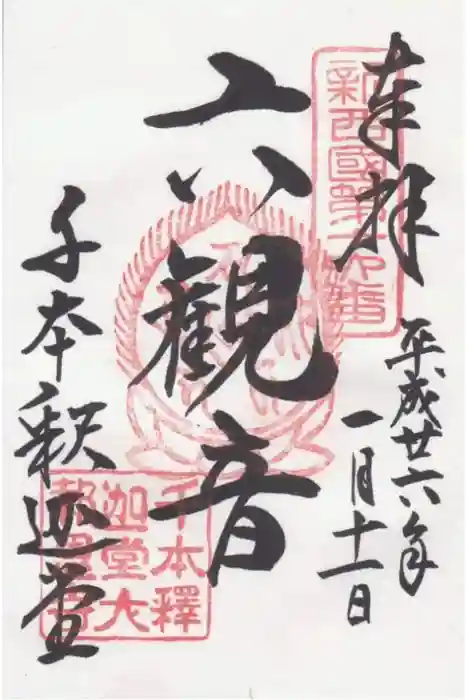 奉拝
平成廿六年
一月十一日
六観音
千本釈迦堂
新西國第十六番
千本釋
迦堂大
報恩寺